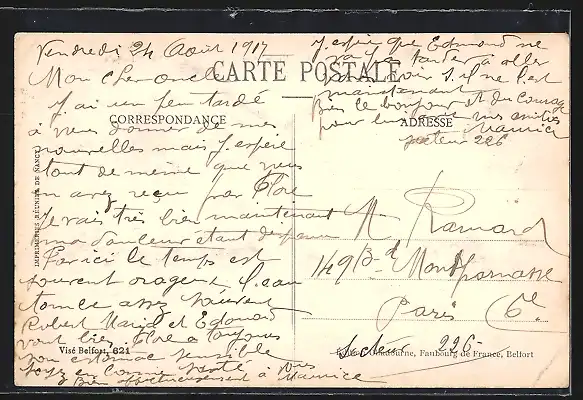 Vendredi 24 Août 1917
Mon cher oncle
J'ai un peu tardé
à vous donner de mes
nouvelles mais J'espère
tout de même que vous
m'avez reçu par Flore
Je vais très bien maintenant
ma douleur étant disparu
Par ici le temps est
souvent orageux l'eau
tombe assez souvent
Robert Maud et Edouard
vont bien Flore a toujours
son estomac sensible
Soyez en bonne santé
Bien affectueusement à vous
Maurice
J'espère que Edmond ne
va tarder à aller
voir s'il ne l'est
maintenant
Bien le bonjour et du courage
pour lui mes amitiés
Maurice
secteur 226
CARTE POSTALE
CORRESPONDANCE
ADRESSE
M Ramard
149 Bd Montparnasse
Paris 6e
Secteur 226-
IMPRIMERIES RÉUNIES DE NANCY
Visé Belfort, 621
Faubourg de France, Belfort